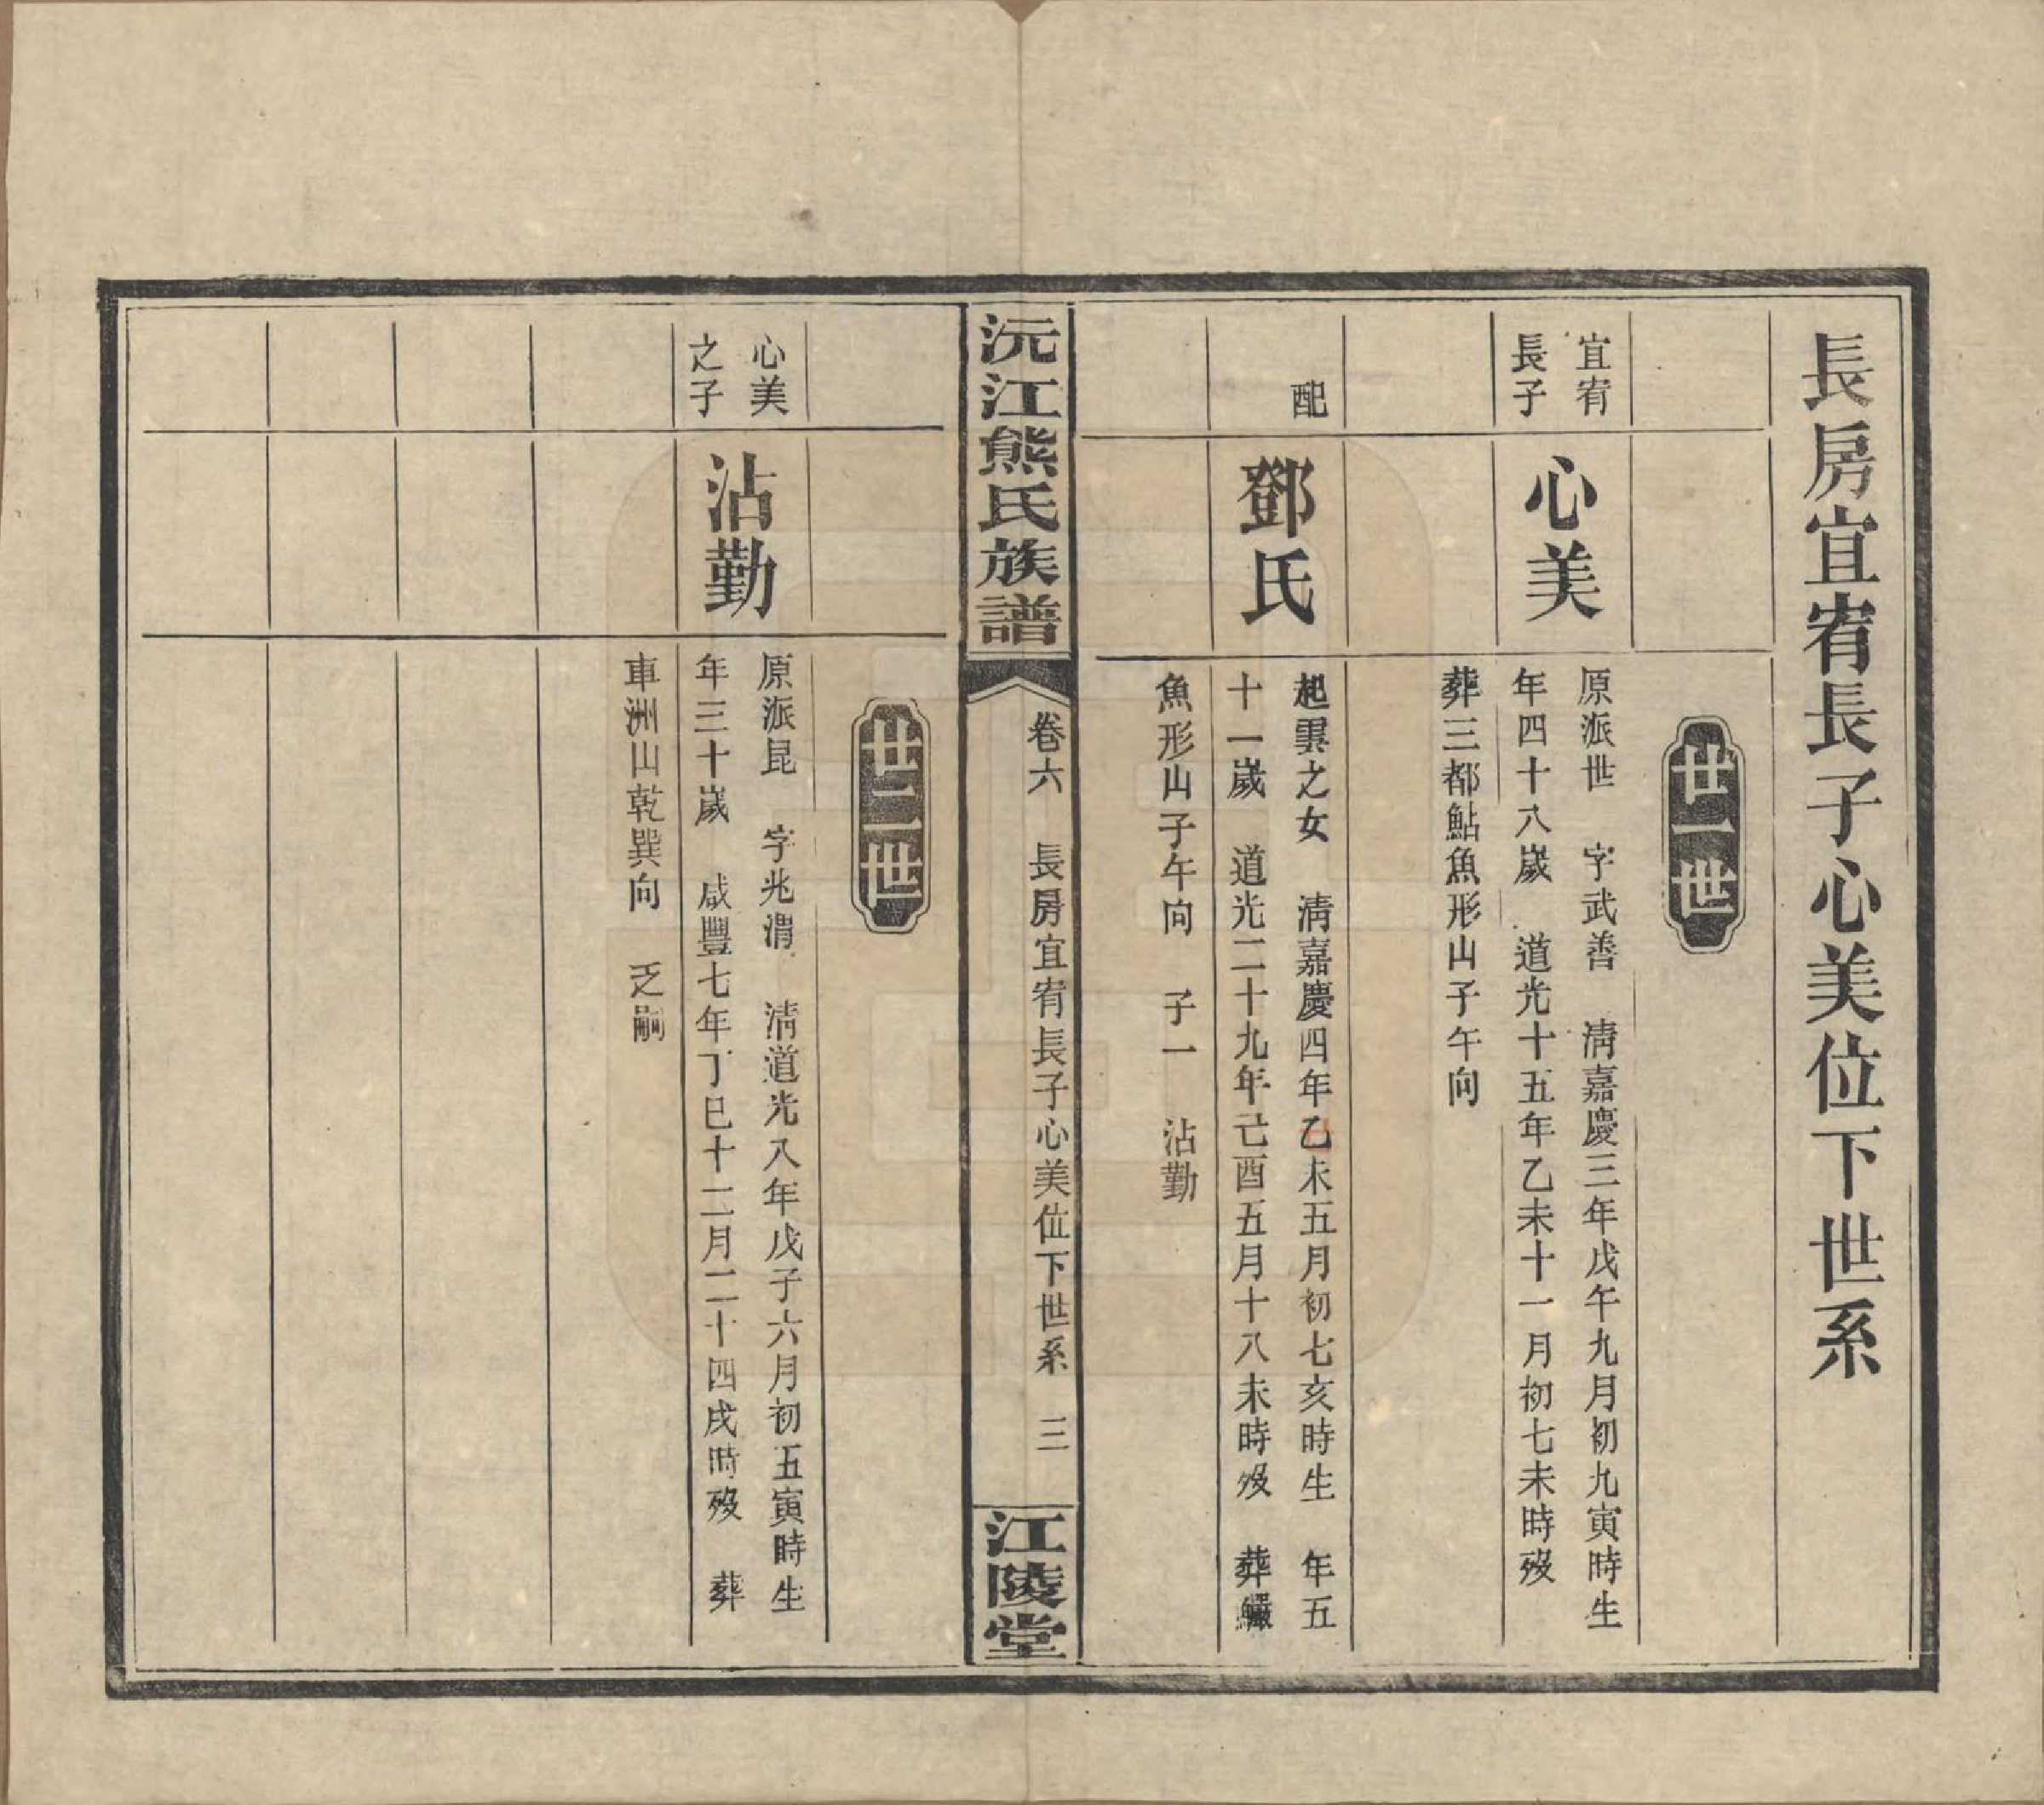 長房宜宥長子心美位下世系
廿一世
宜宥
長子
心美
原派世　字武善　清嘉慶三年戊午九月初九寅時生
年四十八歲　道光十五年乙未十一月初七未時歿
葬三都鮎魚形山子午向
配
鄧氏
起雲之女　清嘉慶四年乙未五月初七亥時生　年五
十一歲　道光二十九年己酉五月十八未時歿　葬
魚形山子午向　子一　沾勤
沅江熊氏族譜
卷六　長房宜宥長子心美位下世系　三
江陵堂
廿二世
心美
之子
沾勤
原派昆　字兆渭　清道光八年戊子六月初五寅時生
年三十歲　咸豐七年丁巳十二月二十四戌時歿　葬
車洲山乾巽向　乏嗣